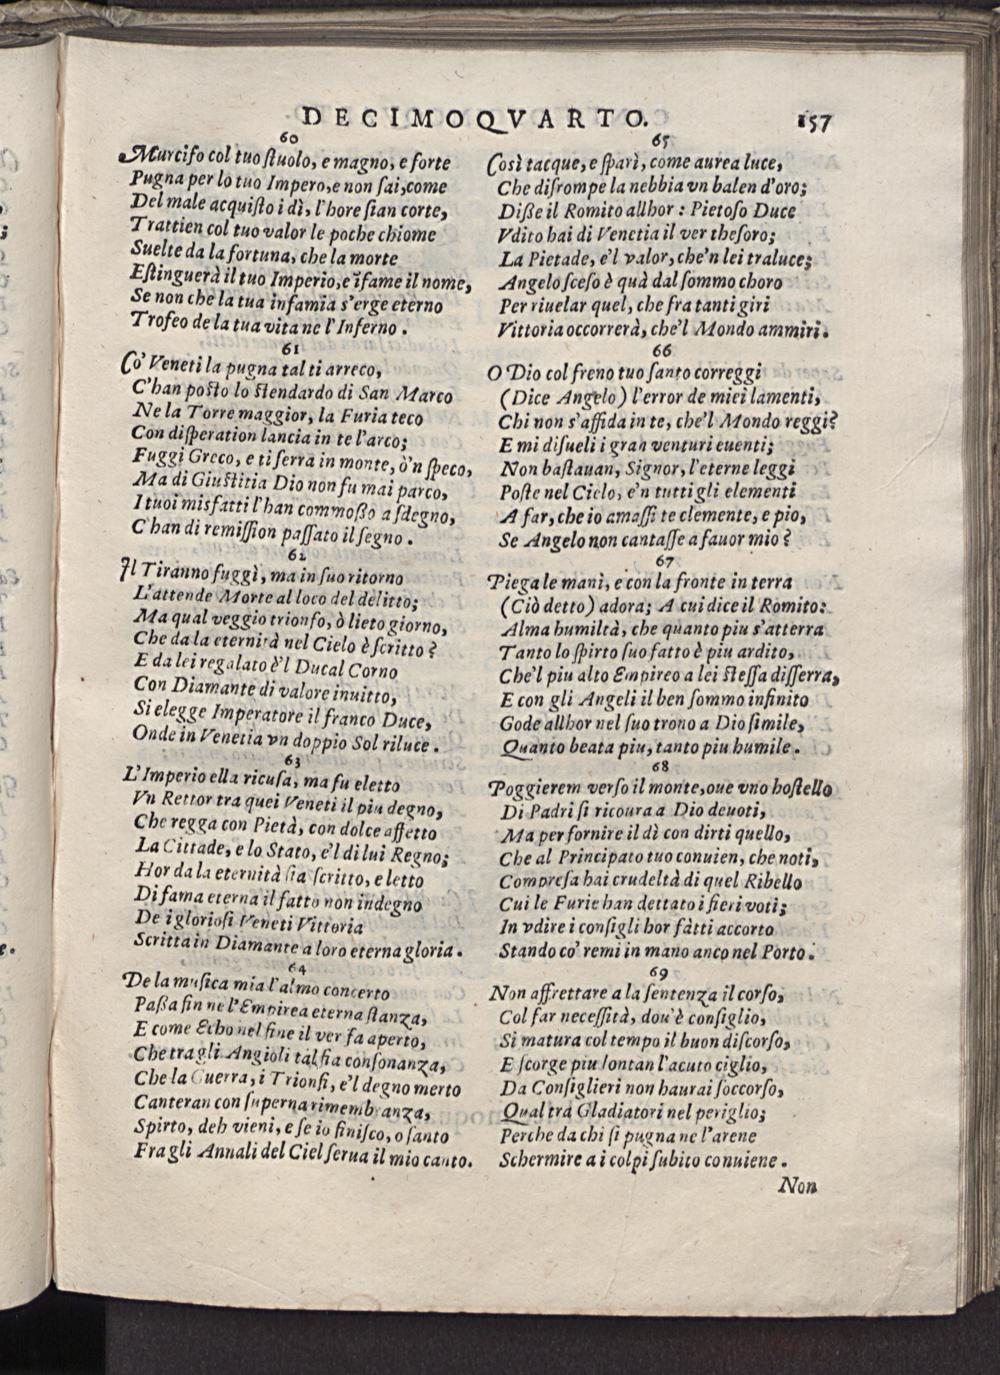 DECIMOQVARTO. 157
60
Murcifo col tuo ſtuolo, e magno, e forte
Pugna per lo tuo Impero, e non ſai, come
Del male acquiſto i dì, l'hore ſian corte,
Trattien col tuo valor le poche chiome
Suelte da la fortuna, che la morte
Eſtinguerà il tuo Imperio, e īfame il nome,
Se non che la tua infamia s'erge eterno
Trofeo de la tua vita ne l'Inferno.
61
Co' Veneti la pugna tal ti arreco,
C'han poſto lo ſtendardo di San Marco
Ne la Torre maggior, la Furia teco
Con diſperation lancia in te l'arco;
Fuggi Greco, e ti ſerra in monte, ò'n ſpeco,
Ma di Giuſtitia Dio non fu mai parco,
I tuoi misfatti l'han commoßo a ſdegno,
C'han di remiſſion paſſato il ſegno.
62
Il Tiranno fuggì, ma in ſuo ritorno
L'attende Morte al loco del delitto;
Ma qual veggio trionfo, ò lieto giorno,
Che da la eternità nel Cielo è ſcritto?
E da lei regalato è'l Ducal Corno
Con Diamante di valore inuitto,
Si elegge Imperatore il franco Duce,
Onde in Venetia vn doppio Sol riluce.
63
L'Imperio ella ricuſa, ma fu eletto
Vn Rettor tra quei Veneti il piu degno,
Che regga con Pietà, con dolce affetto
La Cittade, e lo Stato, e'l di lui Regno;
Hor da la eternità ſia ſcritto, e letto
Di fama eterna il fatto non indegno
De i glorioſi Veneti Vittoria
Scritta in Diamante a loro eterna gloria.
64
De la muſica mia l'almo concerto
Paßa fin ne l'Empirea eterna ſtanza,
E come Echo nel fine il ver fa aperto,
Che tra gli Angioli tal ſia conſonanza,
Che la Guerra, i Trionfi, e'l degno merto
Canteran con ſuperna rimembranza,
Spirto, deh vieni, e ſe io finiſco, o ſanto
Fra gli Annali del Ciel ſerua il mio canto.
65
Così tacque, e ſparì, come aurea luce,
Che diſrompe la nebbia vn balen d'oro;
Diße il Romito allhor: Pietoſo Duce
Vdito hai di Venetia il ver theſoro;
La Pietade, e'l valor, che'n lei traluce;
Angelo ſceſo è quà dal ſommo choro
Per riuelar quel, che fra tanti giri
Vittoria occorrerà, che'l Mondo ammiri.
66
O Dio col freno tuo ſanto correggi
(Dice Angelo) l'error de miei lamenti,
Chi non s'affida in te, che'l Mondo reggi?
E mi diſueli i gran venturi euenti;
Non baſtauan, Signor, l'eterne leggi
Poſte nel Cielo, e'n tutti gli elementi
A far, che io amaſſi te clemente, e pio,
Se Angelo non cantaſſe a fauor mio?
67
Piega le mani, e con la fronte in terra
(Ciò detto) adora; A cui dice il Romito:
Alma humiltà, che quanto piu s'atterra
Tanto lo ſpirto ſuo fatto è piu ardito,
Che'l piu alto Empireo a lei ſteſſa diſſerra,
E con gli Angeli il ben ſommo infinito
Gode allhor nel ſuo trono a Dio ſimile,
Quanto beata piu, tanto piu humile.
68
Poggierem verſo il monte, oue vno hoſtello
Di Padri ſi ricoura a Dio deuoti,
Ma per fornire il dì con dirti quello,
Che al Principato tuo conuien, che noti,
Compreſa hai crudeltà di quel Ribello
Cui le Furie han dettato i fieri voti;
In vdire i conſigli hor fàtti accorto
Stando co' remi in mano anco nel Porto.
69
Non affrettare a la ſentenza il corſo,
Col far neceſſità, dou'è conſiglio,
Si matura col tempo il buon diſcorſo,
E ſcorge piu lontan l'acuto ciglio,
Da Conſiglieri non haurai ſoccorſo,
Qual tra Gladiatori nel periglio;
Perche da chi ſi pugna ne l'arene
Schermire a i colpi ſubito conuiene.
Non